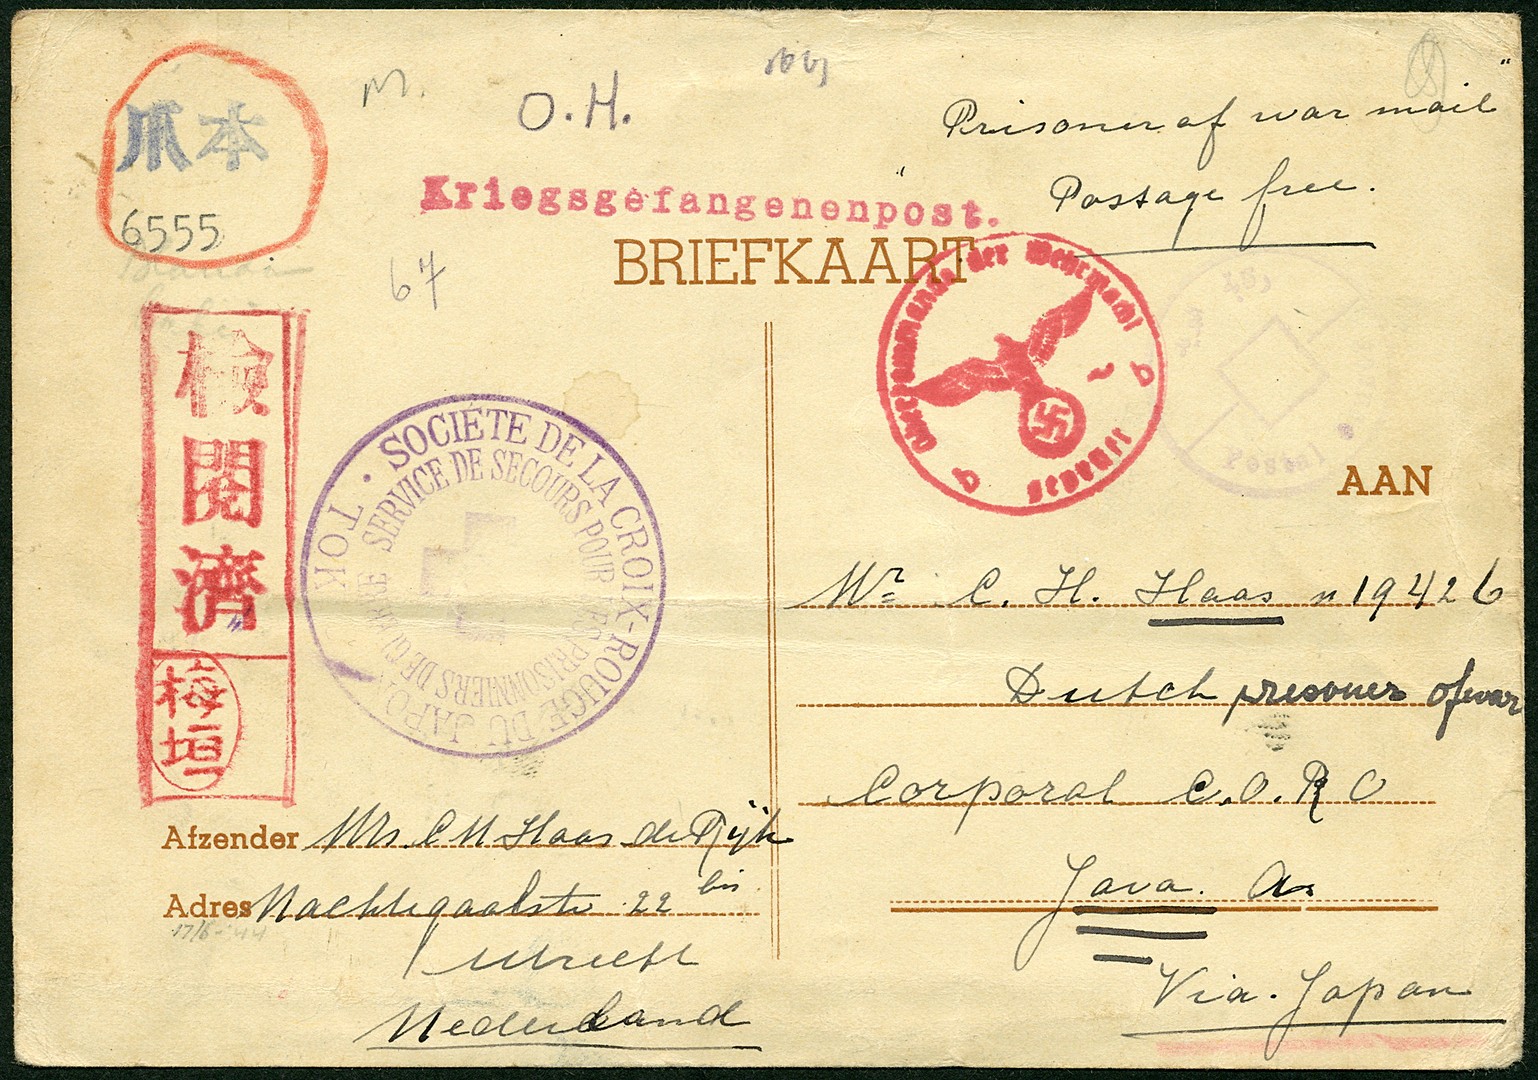 爪本
6555
M.
O.H.
67
"Prisoner of war mail"
Postage free.
Kriegsgefangenenpost.
BRIEFKAART
Oberkommando der Wehrmacht
geprüft
b b
Postal
検閲済
梅垣
SOCIÉTÉ DE LA CROIX-ROUGE DU JAPON · TOKIO ·
SERVICE DE SECOURS POUR LES PRISONNIERS DE GUERRE
AAN
Mr C. H. Haas n 19426
Dutch prisoner of war
Corporal C.O.R O
Java. a.
Via. Japan
Afzender Mrs. C M Haas de Rijk
Adres Nachtegaalstr 22 bis.
17/6-44
Utrecht
Nederland